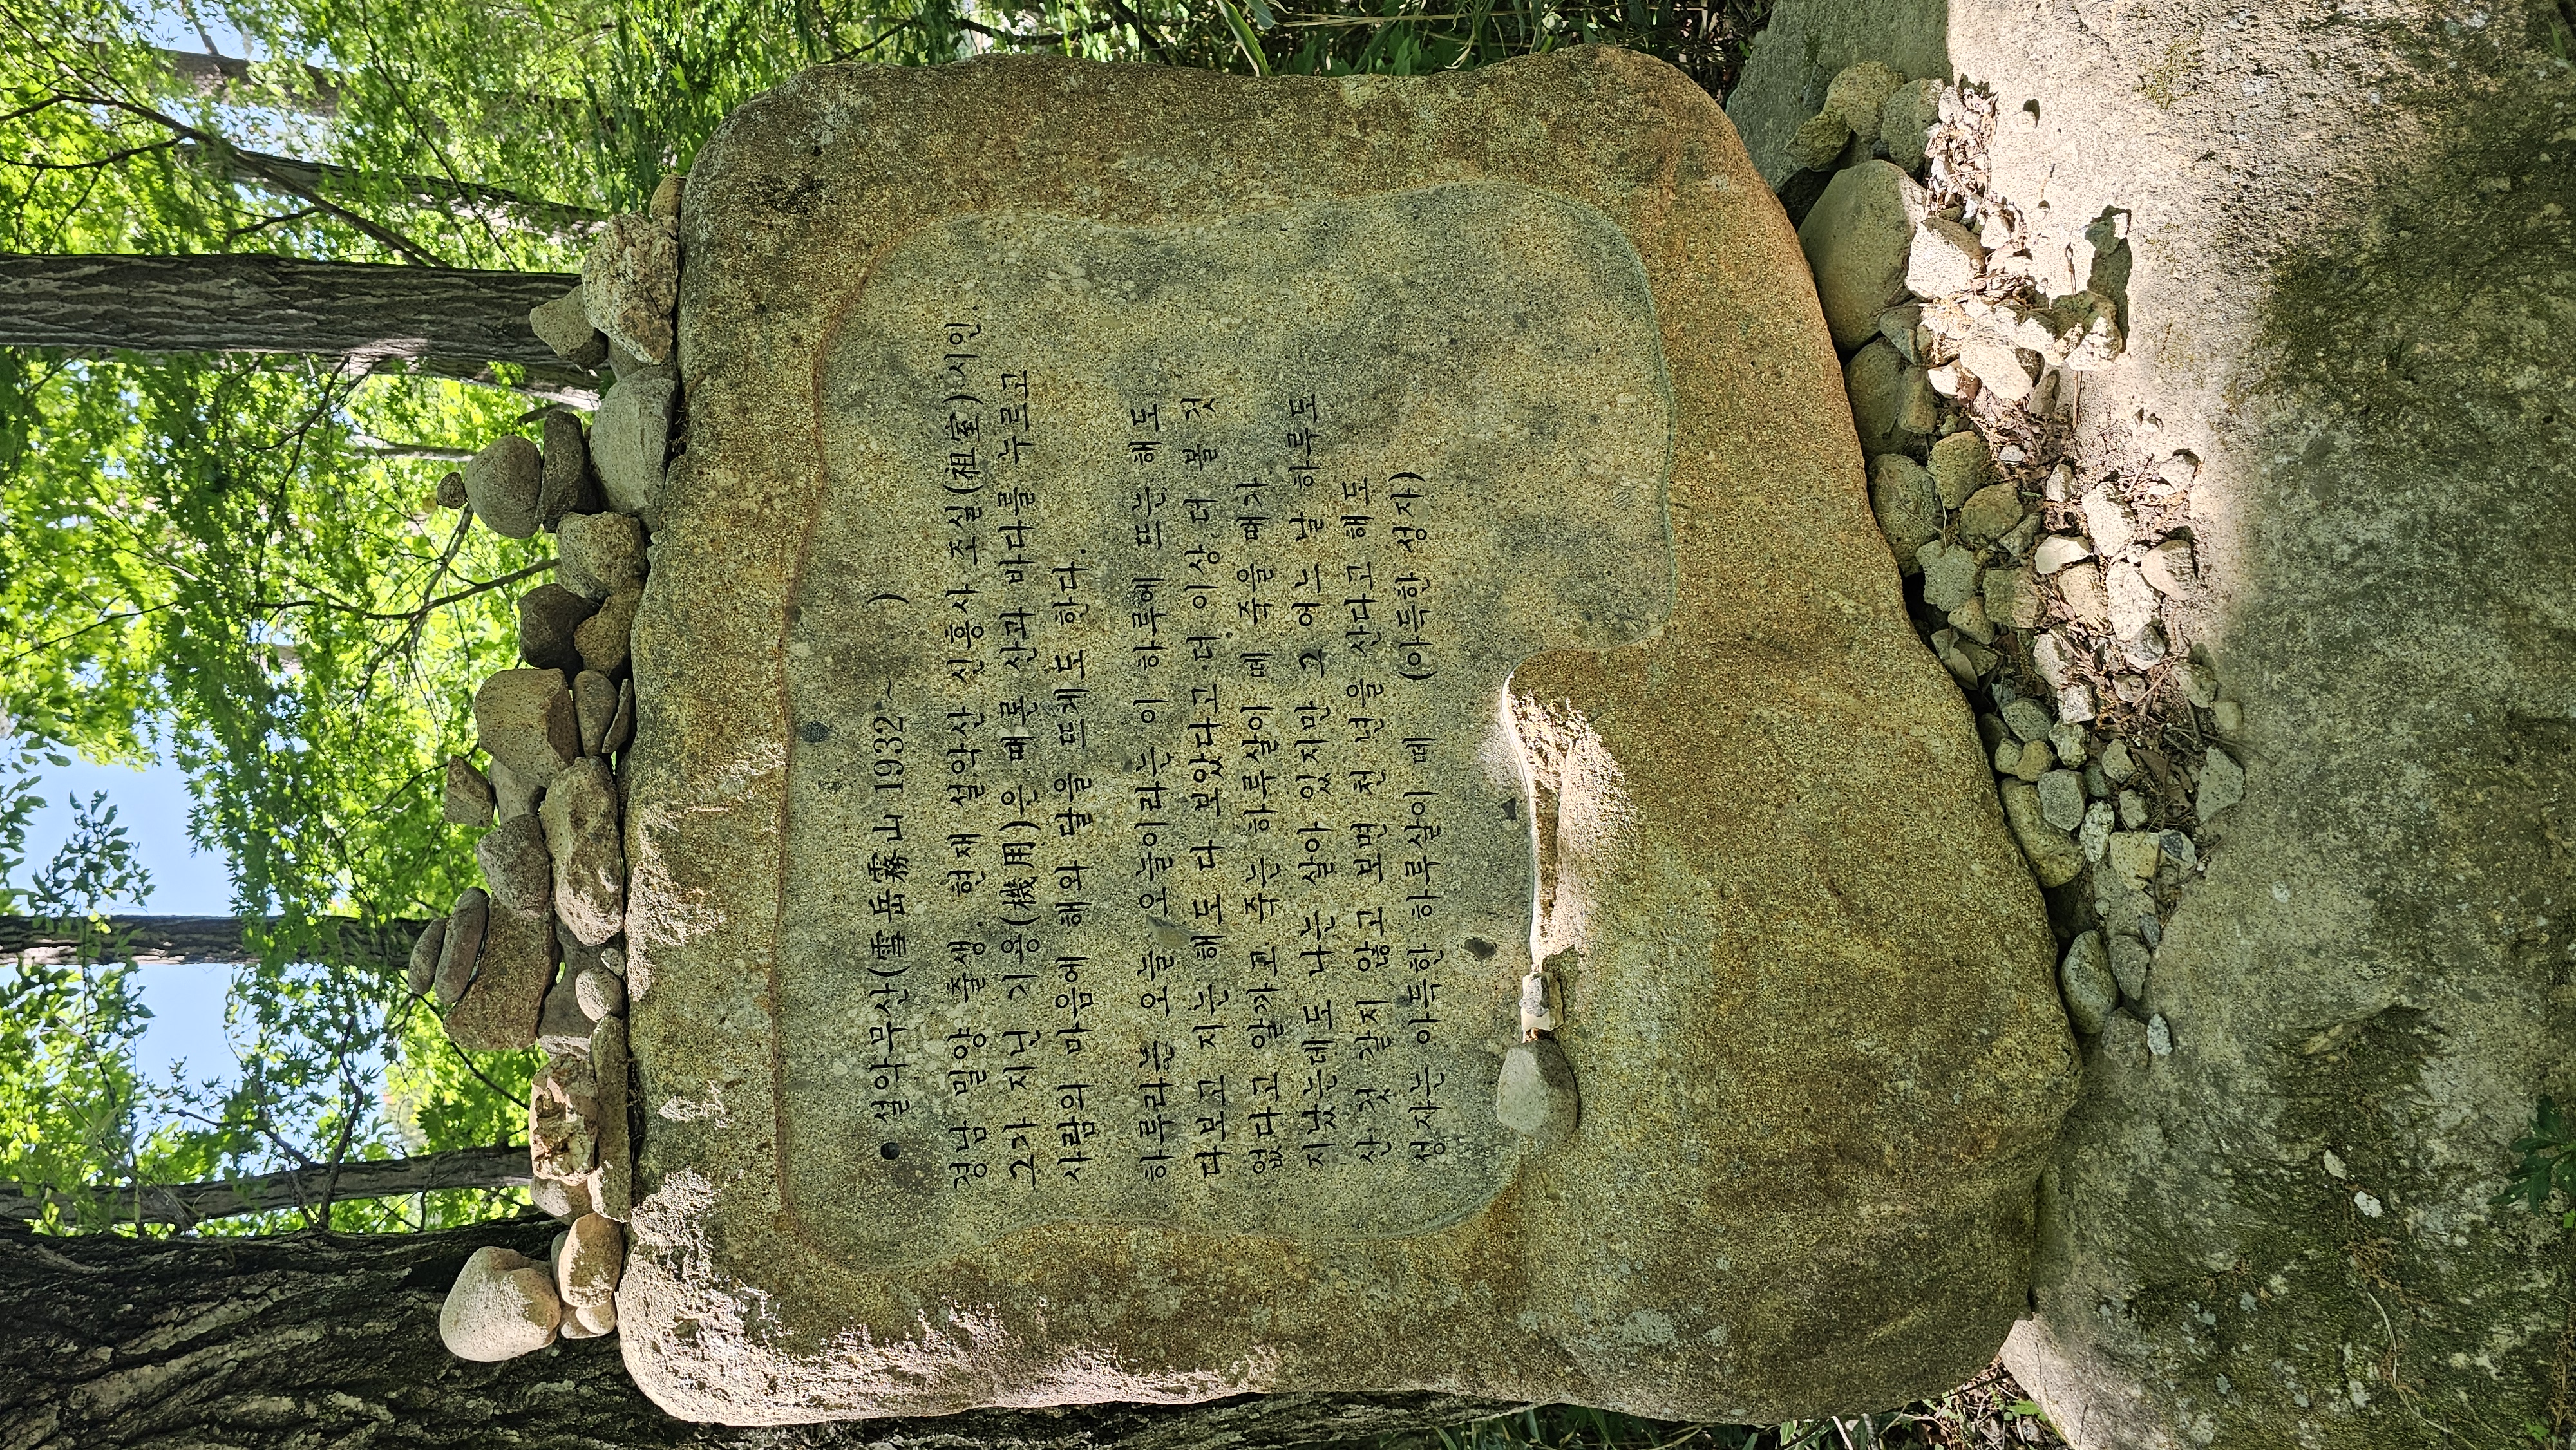 ● 설악무산(雪岳霧山 1932~ )
경남 밀양 출생. 현재 설악산 신흥사 조실(祖室)·시인.
그가 지닌 기용(機用)은 때론 산과 바다를 누르고
사람의 마음에 해와 달을 뜨게도 한다.
하루라는 오늘 오늘이라는 이 하루에 뜨는 해도
다보고 지는 해도 다 보았다고 더 이상 더 볼 것
없다고 알까고 죽는 하루살이 떼 죽을 때가
지났는데도 나는 살아 있지만 그 어느 날 하루도
산 것 같지 않고 보면 천 년을 산다고 해도
성자는 아득한 하루살이 떼 (아득한 성자)